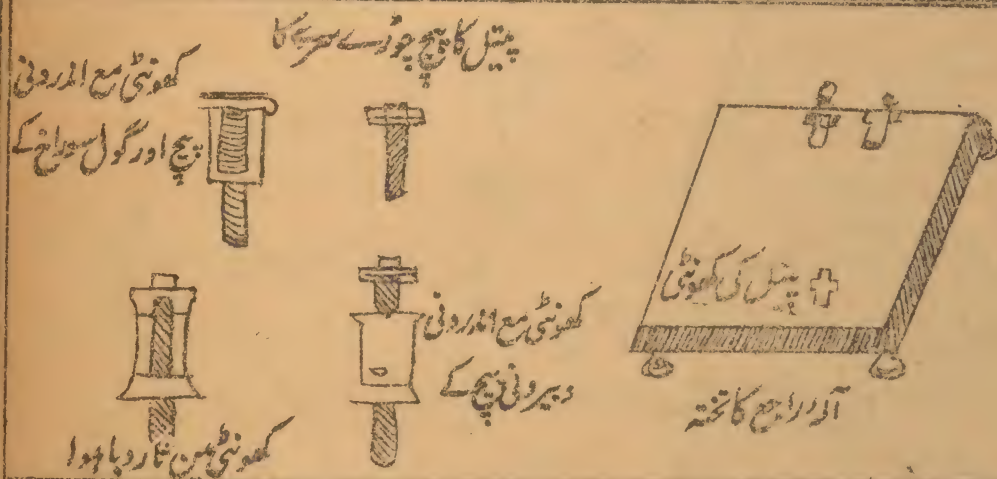 پیتل کا پیچ چوڑے سرے کا
کھونٹی مع اندرونی
پیچ اور گول سوراخ کے
پیتل کی کھونٹی
کھونٹی مع اندرونی
و بیرونی پیچ کے
کا تختہ
کھونٹی مین تار دبا ہوا